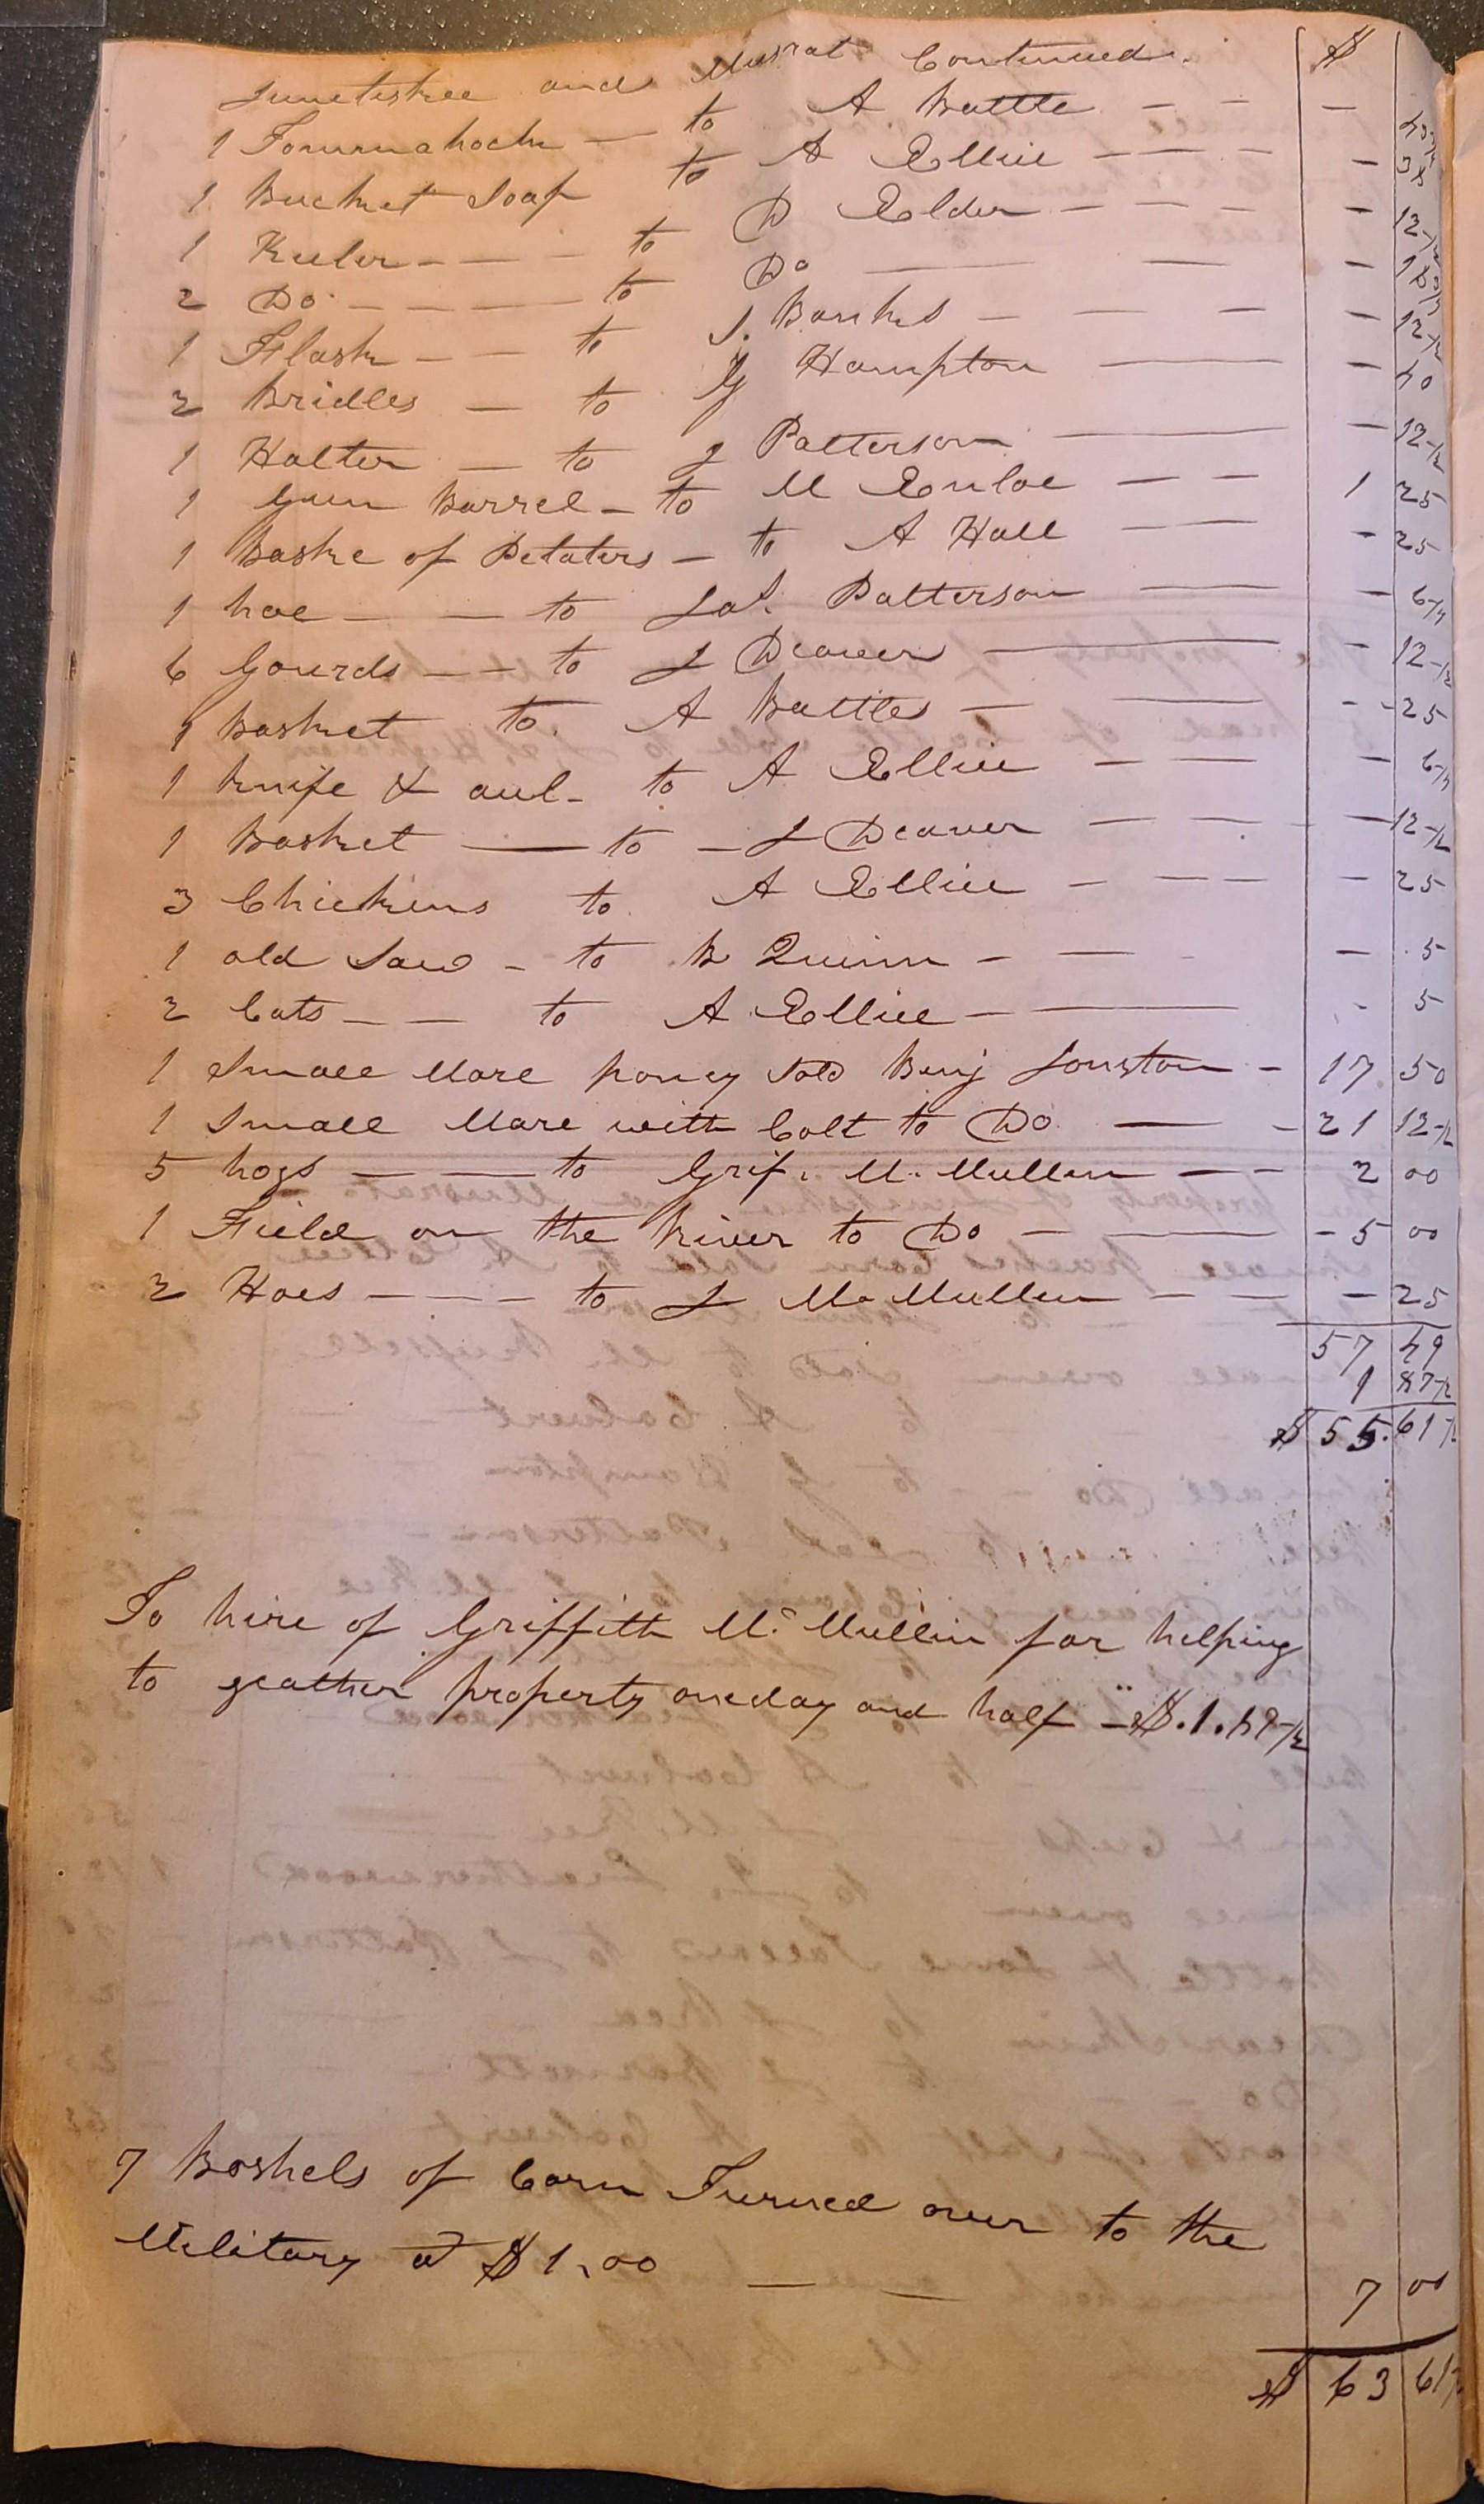 Junetiskee and Musrat Continued. $
1 Tommahock — to A Battle - - —
1 Bucket Soap to A Ellice - - - - — 38
1 Keeler - - - to D Elder - - - - — 12-1/2
2 Do - - - - to Do — — —
1 Flask - - to J. Banks - - - — 12-1/2
2 Bridles - to G Hampton — — 50
1 Halter - to J Patterson — — 12-1/2
1 Gun Barrel - to M Enloe - - 1 25
1 Baske of Petaters - to A Hall - - - 25
1 hoe - - to Jas. Patterson - - - 6-1/4
6 Gourds - - to J Deaver — - 12-1/2
1 Basket to A Battles - — - - 25
1 Knife & aul - to A Ellice - - - 6-1/4
1 Basket — to - J Deaver - - - - — 12-1/2
3 Chickins to A Ellice - - - - 25
1 old Saw - to B Quinn - - - - 5
2 Cats - - to A Ellice - — - 5
1 Small Mare poney Sold Benj Jonston - 17 50
1 Small Mare with Colt to Do — - 21 12-1/2
5 hogs — — to Grif. Mc Mullin - - 2 00
1 Field on the River to Do - — - 5 00
2 Hoes - - - - to J Mc Mullin - - - 25
57 49
1 87-1/2
$ 55.61 1/2
To hire of Griffith Mc Mullin for helping
to geather property oneday and half - $.1.87-1/2
7 Boshels of Corn Turned over to the
Military @ $1.00 — —
7 00
$ 63 61 1/2